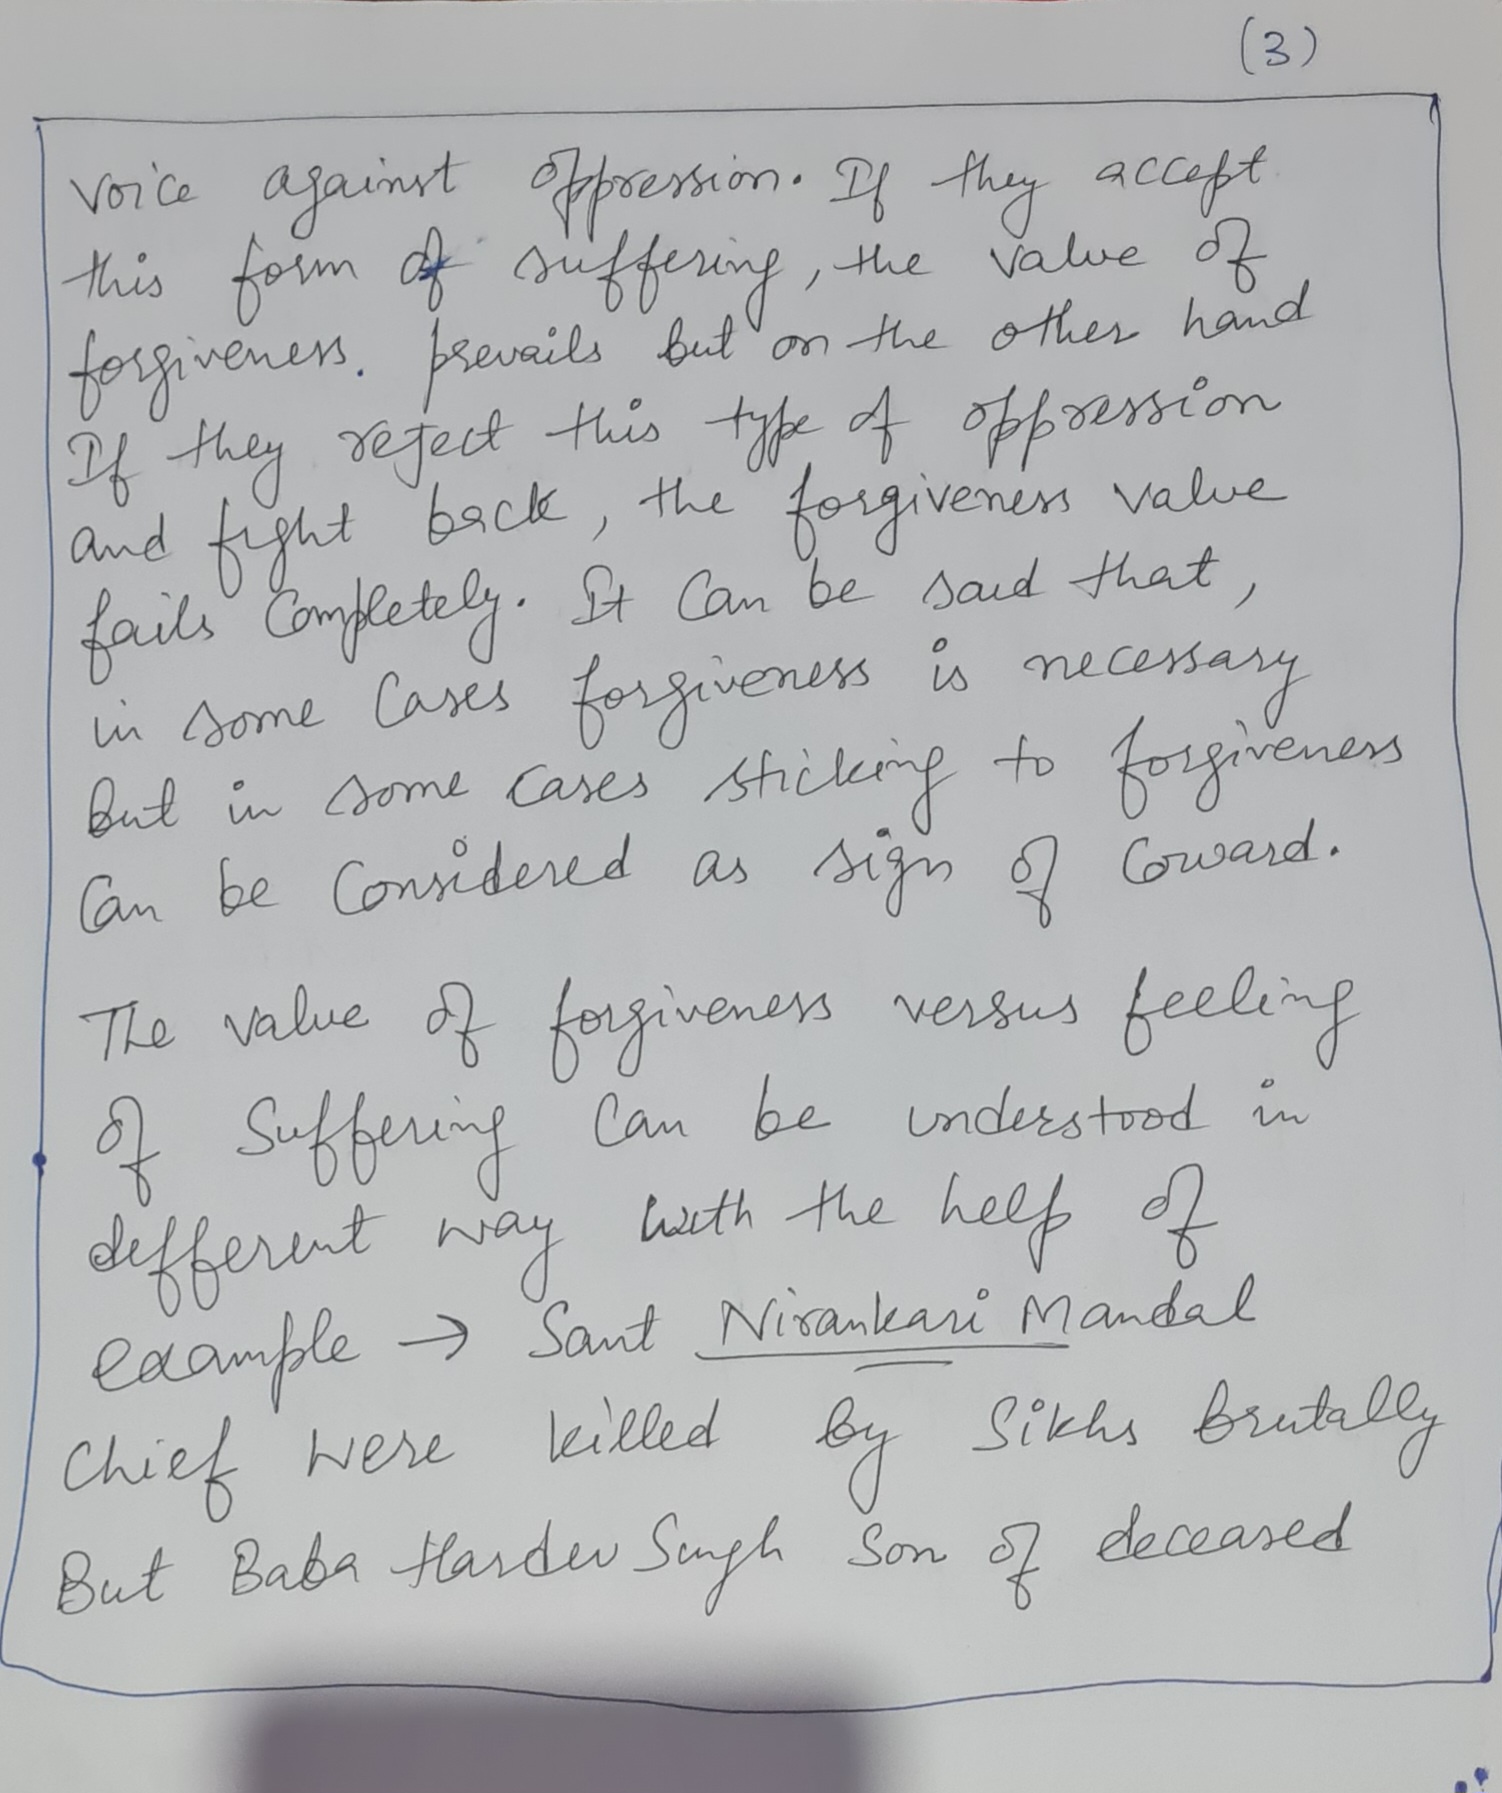 (3)
voice against oppression. If they accept
this form of suffering, the value of
forgiveness. prevails but on the other hand
If they reject this type of oppression
and fight back, the forgiveness value
fails completely. It can be said that,
in some cases forgiveness is necessary
but in some cases sticking to forgiveness
can be considered as sign of coward.
The value of forgiveness versus feeling
of suffering can be understood in
defferent way with the help of
example → Sant Nirankari Mandal
Chief were killed by Sikhs brutally
But Baba Hardev Singh son of deceased